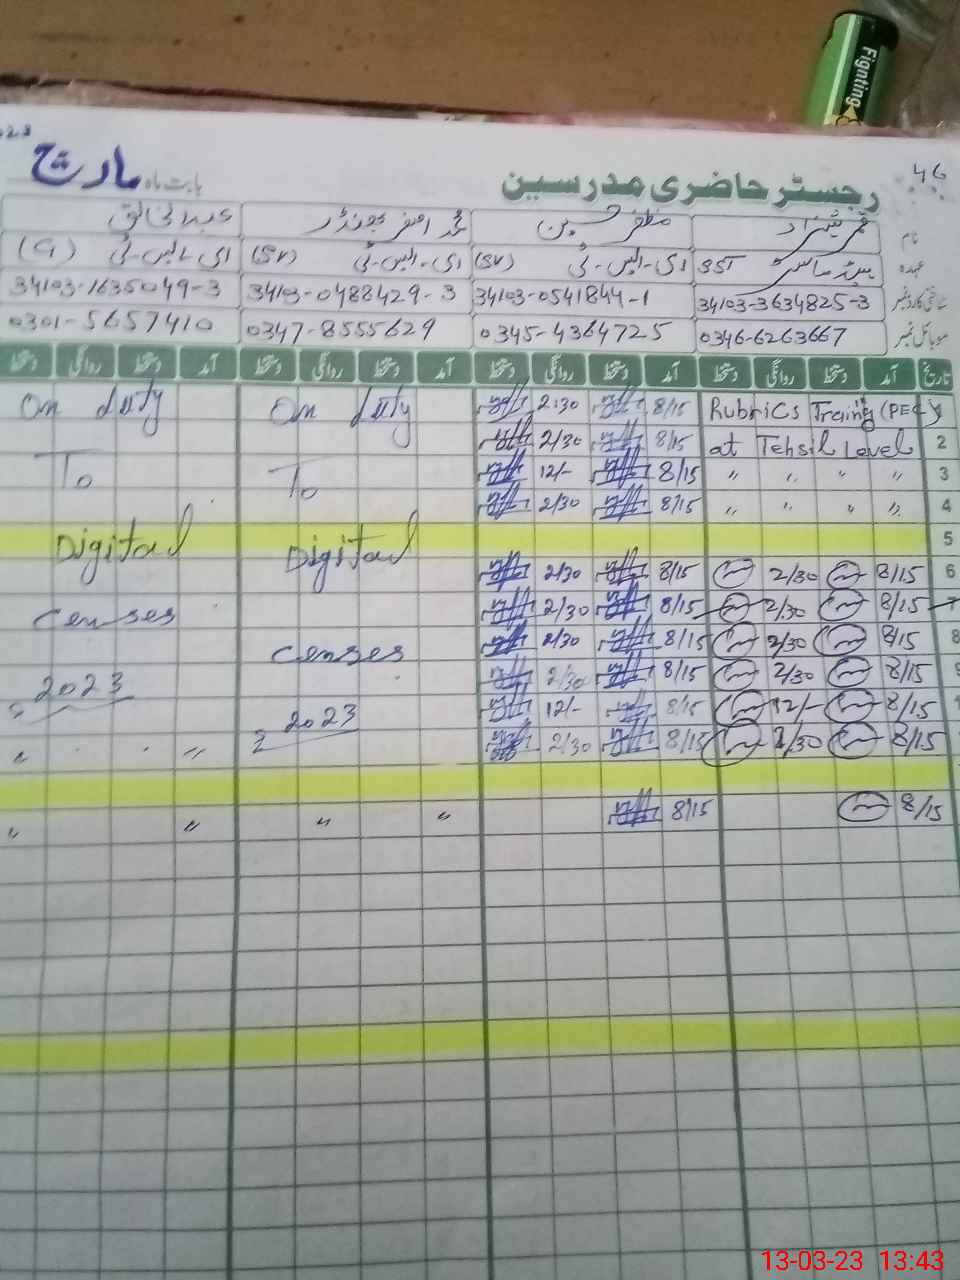 Fighting
46
رجسٹر حاضری مدرسین بابت ماہ مارچ
نام قمر شہزاد مظفر حسین محمد اصغر عبدالخالق
عہدہ ہیڈ ماسٹر SST ای-ایس-ٹی (SV) ای-ایس-ٹی (SV) ای-ایس-ٹی (G)
شناختی کارڈ نمبر 34103-3634825-3 34103-0541844-1 34103-0488429-3 34103-1635049-3
موبائل نمبر 0346-6263667 0345-4364725 0347-8555629 0301-5657410
تاریخ آمد دستخط روانگی دستخط آمد دستخط روانگی دستخط آمد دستخط روانگی دستخط آمد دستخط روانگی دستخط
Rubrics Traing (PEC) 8/15 2:30 On duty On duty
2 at Tehsil Level 8/15 2/30
3 " " " " 8/15 12/- To To
4 " " " " 8/15 2/30
5 Digital Digital
6 8/15 2/30 8/15 2/30
7 8/15 2/30 8/15 2/30 censes
8 8/15 2/30 8/15 2/30 censes
9 8/15 2/30 8/15 2/30 2023
8/15 12/- 8/15 12/- 2023
8/15 2/30 8/15 2/30 " "
8/15 8/15 " " " "
13-03-23 13:43